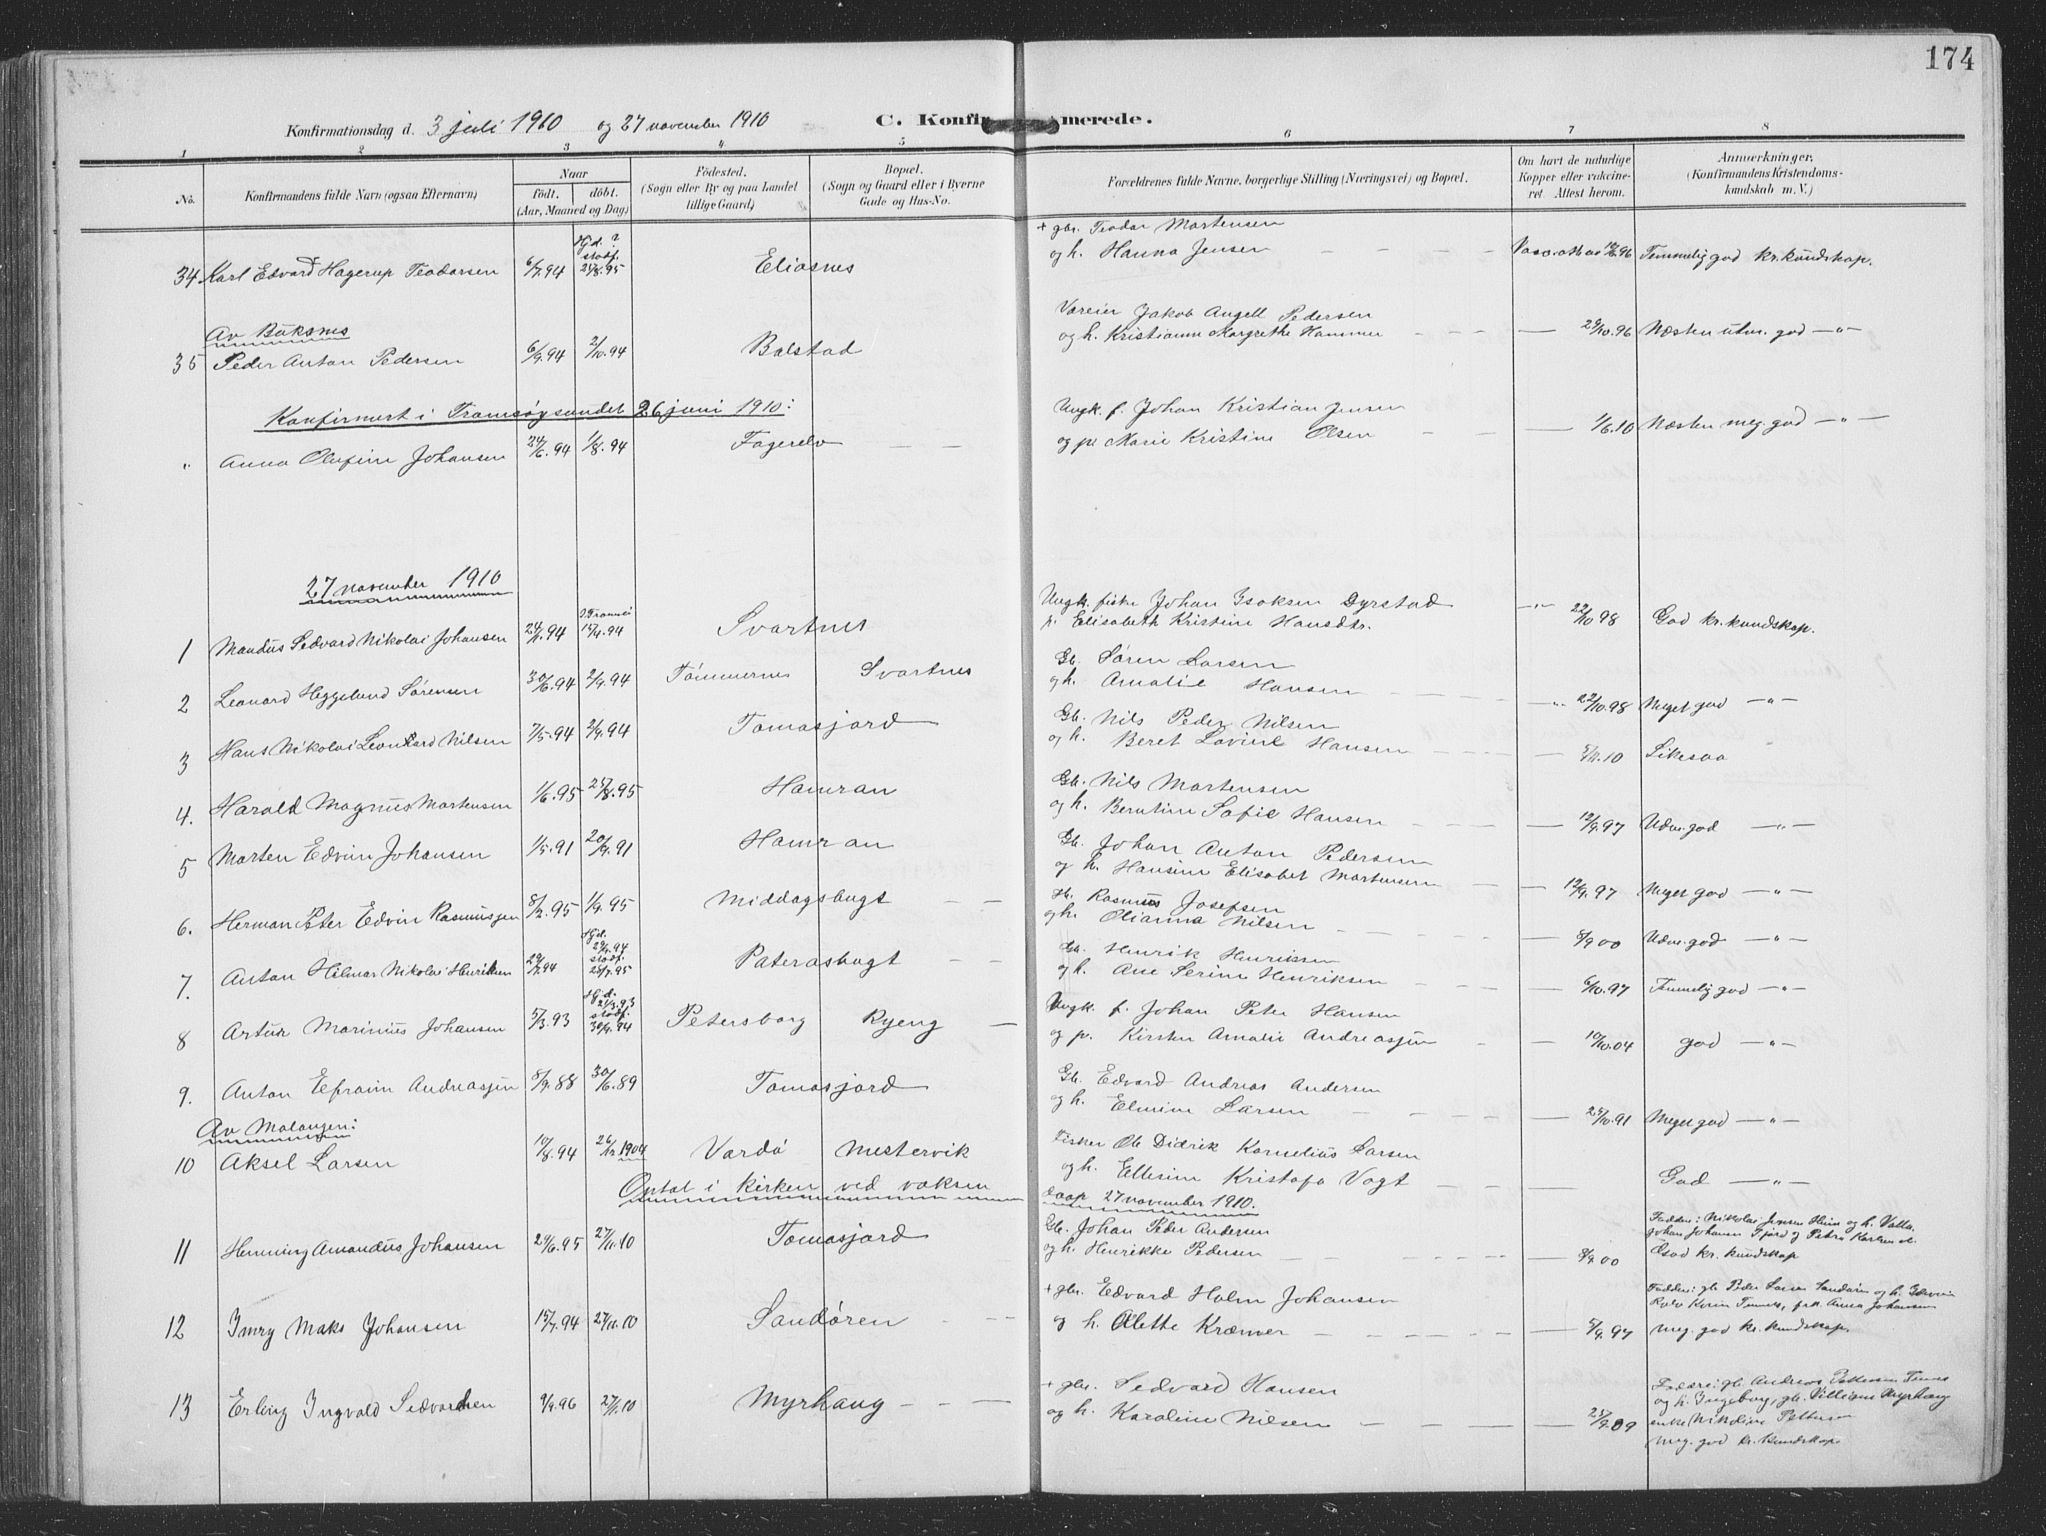 174
Konfirmationsdag d. 3 juli 1910 og 27 november 1910 C. Konfir merede.
1 2 3 4 5 6 7 8
No. Konfirmandens fulde Navn (ogsaa Efternavn) Naar født. døbt. (Aar, Maaned og Dag) Födested. (Sogn eller By og paa Landet tillige Gaard) Bopæl. (Sogn og Gaard eller i Byerne Gade og Hus-No. Forældrenes fulde Navne, borgerlige Stilling (Næringsvei) og Bopæl. Om havt de naturlige Kopper eller vakcineret. Attest herom. Anmærkninger. (Konfirmandens Kristendomskundskab m. V.)
+ gbr. Teodor Martensen
34 Karl Edvard Hagerup Teodorsen 6/7.94 Hjd. ? stadf. 25/8.95 Eliasnes og h. Hanna Jensen Temmelig god kr. kundskap.
Væreier Jakob Angell Pedersen
Av Buksnes
og h. Kristianne Margrethe Hammer 29/10.96 Næsten utm. god —"—
35 Peder Anton Pedersen 6/9.94 2/10.94 Balstad
Konfirmert i Tromsøysundet 26 juni 1910:
Ungk. f. Johan Kristian Jensen
" Anna Olufine Johansen 24/6.94 1/8.94 Fagerelv og pe Marie Kristine Olsen 1/6.10 Næsten meg. god —"—
27 november 1910
Ungk. fisk. Johan Isaksen Dyrstad —"— 22/10 98 God kr. kundskap.
1 Mandus Sedvard Nikolai Johansen 24/1.94 15/4.94 Svartnes p. Elisabeth Kristine Hansdtr.
Gb. Søren Larsen
2 Leonard Heggelund Sørensen 30/6.94 2/9.94 Tømmernes Svartnes og h. Amalie Hansen 22/10.98 Meget god —"—
Gb. Nils Peder Nilsen
3 Hans Nikolai Leonhard Nilsen 7/5.94 2/9.94 Tomasjord og h. Beret Lovise Hansen Likesaa
Gb. Nils Martensen
4. Harald Magnus Martensen 1/6.95 25/8.95 Hamran og h. Berntine Sofie Hansen 12/9.97 Udm. god —"—
Gb. Johan Anton Pedersen
5 Marten Edvin Johansen 1/5.91 20/9.91 Hamran og h. Hansine Elisabet Martensen 12/9.97 Meget god —"—
Gb. Rasmus Josefsen
6. Herman Peter Edvin Rasmussen 8/2.95 1/9.95 Middagsbugt og h. Olianna Nilsen 8/9 00 Udm. god —"—
Gb. Henrik Henriksen
7. Anton Hilmar Nikolai Henriksen 29/7.94 Hjd. 29/9.94 stadf. 28/7.95 Paterasbugt og h. Ane Serine Henriksen 6/10.97 Temmelig god —"—
Ungk. f. Johan Peter Hansen
8 Artur Marinius Johansen 5/3.93 Hjd. 21/3.93 stadf. 30/9.94 Petersborg Ryeng og p. Kirsten Amalie Andreassen 10/10.04 god —"—
Gb. Edvard Andreas Andersen
9. Anton Efraim Andreassen 8/9.88 30/6.89 Tomasjord og h. Elmine Larsen 25/10.91 Meget god —"—
Av Malangen:
Fisker Ole Didrik Kornelius Larsen
10 Aksel Larsen 10/8.94 26/12 1904 Vardø Mestervik og h. Ellesine Kristofa Vogt God —"—
Optat i kirken ved voksen daap 27 november 1910.
Gb. Johan Peder Andersen
11 Henning Amandus Johansen 29/6.95 27/11.10 Tomasjord og h. Henrikke Pedersen 8/9.00 God kr. kundskap
+ gbr. Edvard Holm Johansen
12 Imry Maks Johansen 15/7.94 27/11.10 Sandøren og h. Olette Kræmer 5/9.97 meg. god kr. kundskap.
+ gbr. Sedvard Hansen
13 Erling Ingvald Sedvardsen 9/9.96 27/11.10 Myrhaug og h. Karoline Nilsen enke Nikoline Pettersen
meg. god kr. kundskap